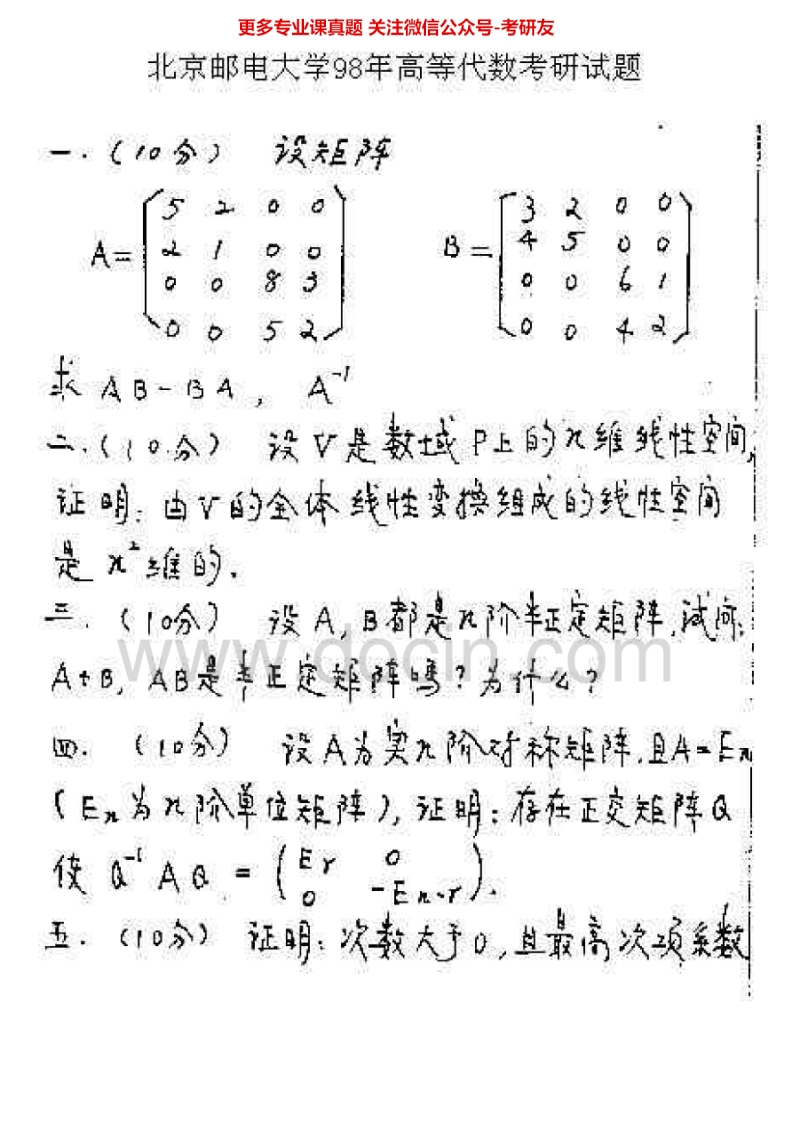 更多专业课真题 关注微信公众号-考研友
北京邮电大学98年高等代数考研试题
一.(10分) 设矩阵
A= ( 5 2 0 0
2 1 0 0
0 0 8 3
0 0 5 2 )
B= ( 3 2 0 0
4 5 0 0
0 0 6 1
0 0 4 2 )
求 AB-BA, A⁻¹
二.(10分) 设V是数域P上的n维线性空间,
证明:由V的全体线性变换组成的线性空间
是n²维的.
三.(10分) 设A,B都是n阶半正定矩阵,试问:
A+B, AB是半正定矩阵吗?为什么?
四.(10分) 设A为实n阶对称矩阵,且A=En
(En为n阶单位矩阵),证明:存在正交矩阵Q
使 Q⁻¹AQ = ( Er 0
0 -En-r ).
五.(10分) 证明:次数大于0,且最高次项系数
www.docin.com